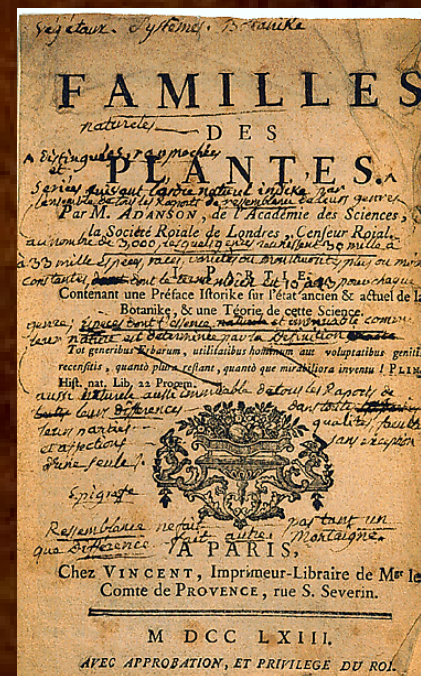 Végétaux. Systèmes. Botanike
FAMILLES
natureles
DES
distinguées, raprochées
et
PLANTES.
Seriées suivant l'ordre naturel indiké par
l'ensemble de tous les Raports de ressemblance de leurs genres
Par M. ADANSON, de l'Académie des Sciences,
la Société Roiale de Londres, Censeur Roial.
au nombre de 3,000, lesquels genres reunissent 30 mille à
33 mille Espèces, races, variétés ou monstruosités plus ou moins
I. PARTIE.
constantes, dont le terme moïen est 10 a 13 pour chaque
Contenant une Préface Istorike sur l'état ancien & actuel de la
Botanike, & une Téorie de cette Science.
genre, Especes dont l'essence naturele et immuable comme
leur nature est determinée par la Definition
Tot generibus herbarum, utilitatibus hominum aut voluptatibus genitis
recensitis, quantò plura restant, quantò que mirabiliora inventu ! PLIN.
Hist. nat. Lib. 22 Proœm.
aussi naturele aussi immuable de tous les Raports de
toutes leurs differences dans toutes
leurs parties qualités, facultés
et affections sans exception
d'une seule.
Epigrafe
Ressemblance ne fait pas tant un
que Différence fait autre. Montaigne.
A PARIS,
Chez VINCENT, Imprimeur-Libraire de Mgr le
Comte de PROVENCE, rue S. Severin.
M DCC LXIII.
AVEC APPROBATION, ET PRIVILEGE DU ROI.